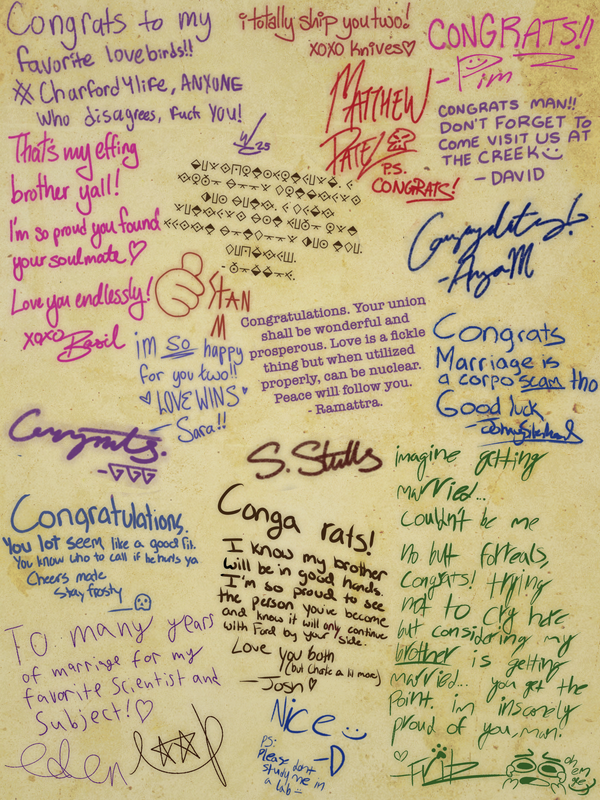 Congrats to my
favorite lovebirds!!
#Charford4life, ANYONE
who disagrees, fuck YOU!
25
i totally ship you two!
xoxo knives♡
CONGRATS!!
-Pim
MATTHEW
PATEL
P.S.
CONGRATS!
CONGRATS MAN!!
DON'T FORGET TO
COME VISIT US AT
THE CREEK
- DAVID
That's my effing
brother yall!
I'm so proud you found
your soulmate ♡
Love you endlessly!
xoxo Basil
STAN
M
- Anya M
Congratulations. Your union
shall be wonderful and
prosperous. Love is a fickle
thing but when utilized
properly, can be nuclear.
Peace will follow you.
- Ramattra.
im SO happy
for you two!!
♥ LOVE WINS ♥
- Sara!!
Congrats
Marriage is
a corpo scam tho
Good luck
- Johnny Silverhand
Congrats.
S. Stulls
Congratulations.
You lot seem like a good fit.
You know who to call if he hurts ya
Cheers mate
Stay frosty
Conga rats!
I know my brother
will be in good hands.
I'm so proud to see
the person you've become
and know it will only continue
with Ford by your side.
Love you both
(but Charlie a lil more)
- Josh ♥
imagine getting
married...
Couldn't be me
No but forreals,
Congrats! trying
not to cry here
but considering my
brother is getting
married... you get the
point. i'm insanely
proud of you, man!
♡
- Fritz
oh em gee
To many years
of marriage for my
favorite Scientist and
Subject!♡
eden
Nice
- D
PS:
Please don't
study me in
a lab